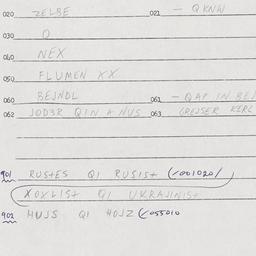 020 ZELBE 021 — QKNW
030 Q
040 NEX
050 FLUMEN XX
060 BEJNDL 061 — QAP IN BEJ
062 JOD3R QIN A NUS 063
901 RUSTES QI RUSIST (✓001020/
XOXLIST QI UKRAJINIST
902 HUJS QI HOJZ (✓055010